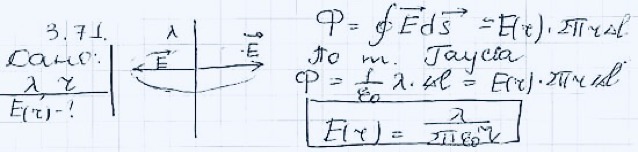 3.71.
Дано:
λ, r
E(r)-?
λ
E⃗
E⃗
Φ = ∮E⃗ds⃗ = E(r)·2πrΔl
По т. Гаусса
Φ = 1/ε₀ λ·Δl = E(r)·2πrΔl
E(r) = λ/2πε₀r